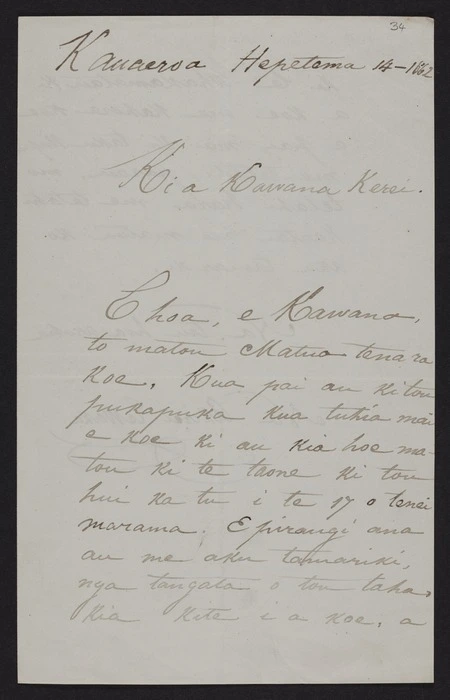 34
Kauaeroa Hepetema 14-1862
Ki a Kawana Kerei.
E hoa, e Kawana,
to matou Matua tena ra
koe. Kua pai au ki tou
pukapuka kua tuhia mai
e koe ki au kia hoe ma-
tou ki te taone ki tou
hui ka tu i te 17 o tenei
marama. E pirangi ana
au me aku tamariki,
nga tangata o tou taha,
kia kite i a koe, a